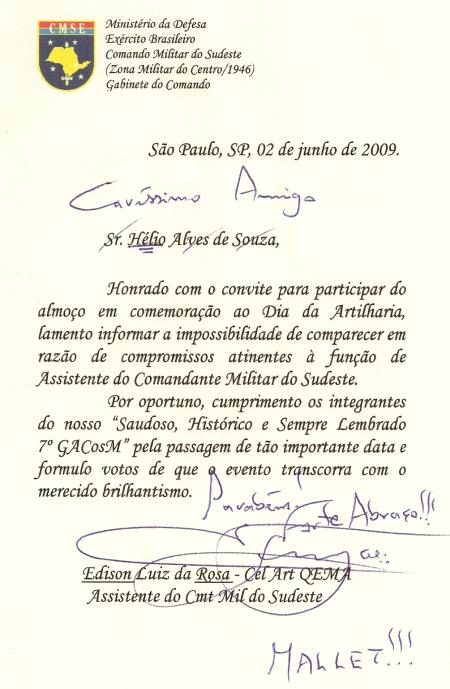 CMSE
Ministério da Defesa
Exército Brasileiro
Comando Militar do Sudeste
(Zona Militar do Centro/1946)
Gabinete do Comando
São Paulo, SP, 02 de junho de 2009.
Caríssimo Amigo
Sr. Hélio Alves de Souza,
Honrado com o convite para participar do
almoço em comemoração ao Dia da Artilharia,
lamento informar a impossibilidade de comparecer em
razão de compromissos atinentes à função de
Assistente do Comandante Militar do Sudeste.
Por oportuno, cumprimento os integrantes
do nosso "Saudoso, Histórico e Sempre Lembrado
7º GACosM" pela passagem de tão importante data e
formulo votos de que o evento transcorra com o
merecido brilhantismo.
Parabéns!
Forte Abraço!!!
Edison Luiz da Rosa - Cel Art QEMA
Assistente do Cmt Mil do Sudeste
MALLET!!!